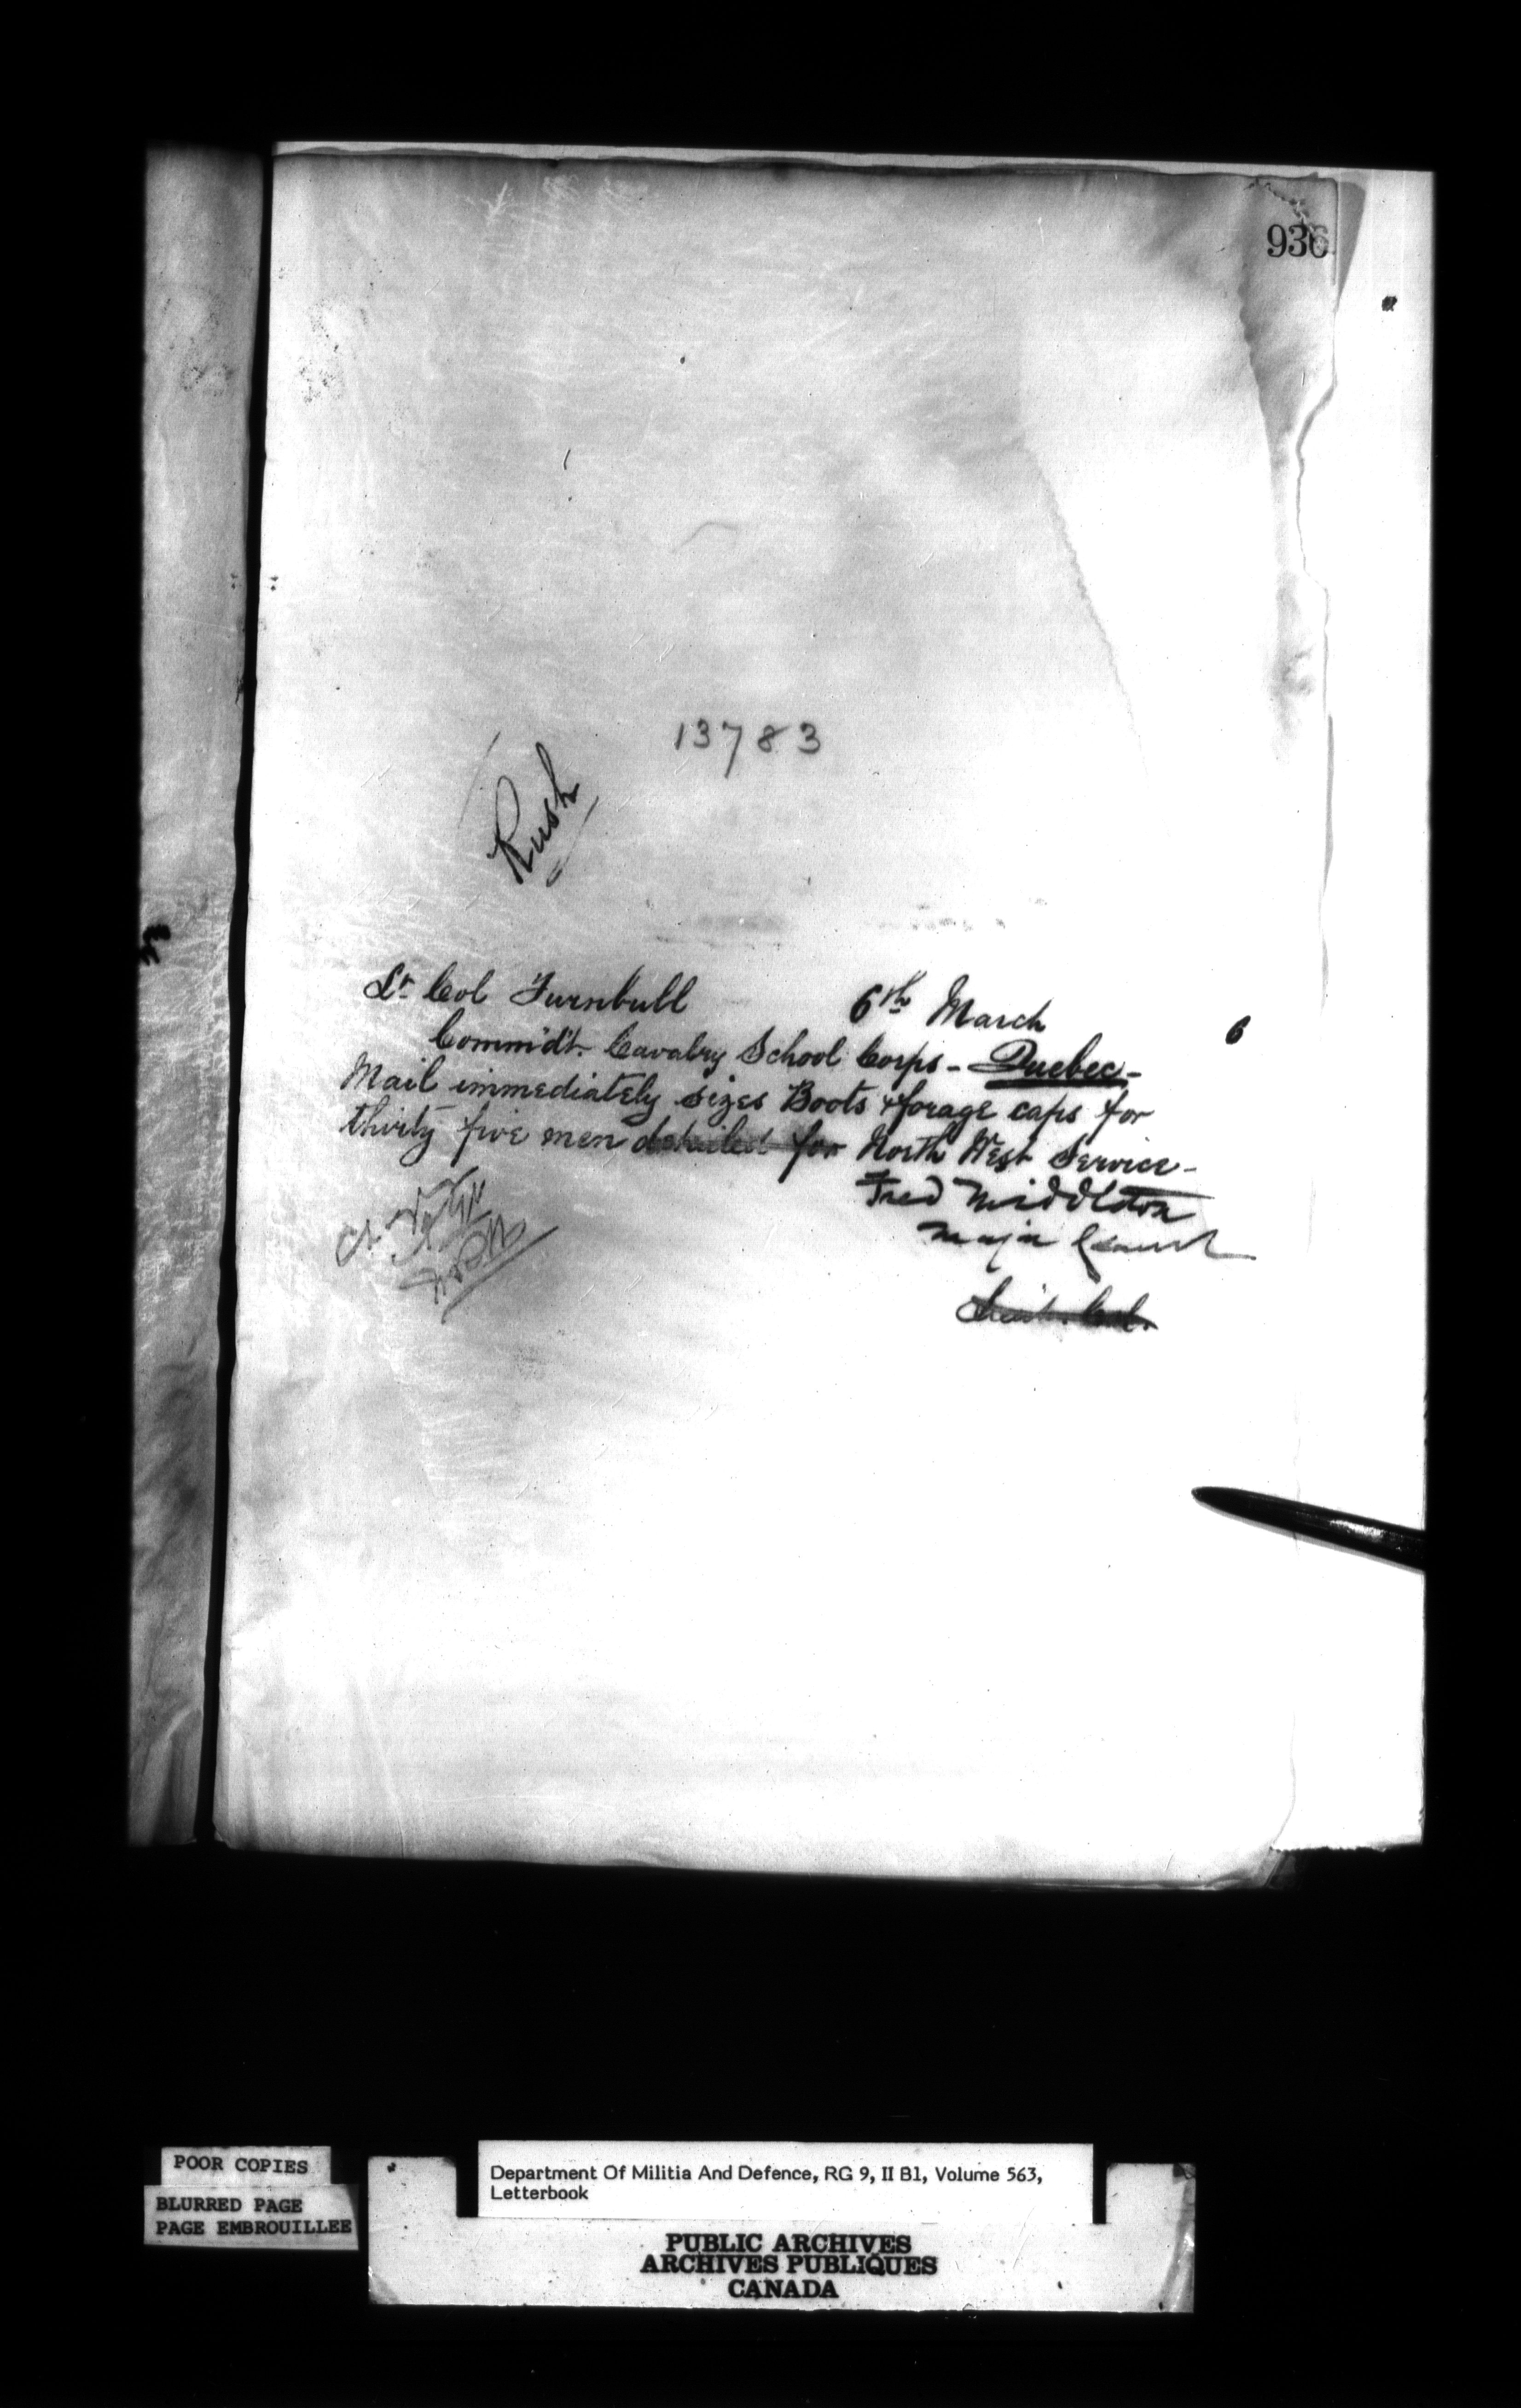 936
13783
Rush
Lt Col Turnbull 6th March 6
Commd't. Cavalry School Corps - Quebec -
Mail immediately sizes Boots & forage caps for
thirty five men detailed for North West Service -
Fred Middleton
Major General
Lieut. Col.
POOR COPIES
BLURRED PAGE
PAGE EMBROUILLEE
Department Of Militia And Defence, RG 9, II B1, Volume 563,
Letterbook
PUBLIC ARCHIVES
ARCHIVES PUBLIQUES
CANADA